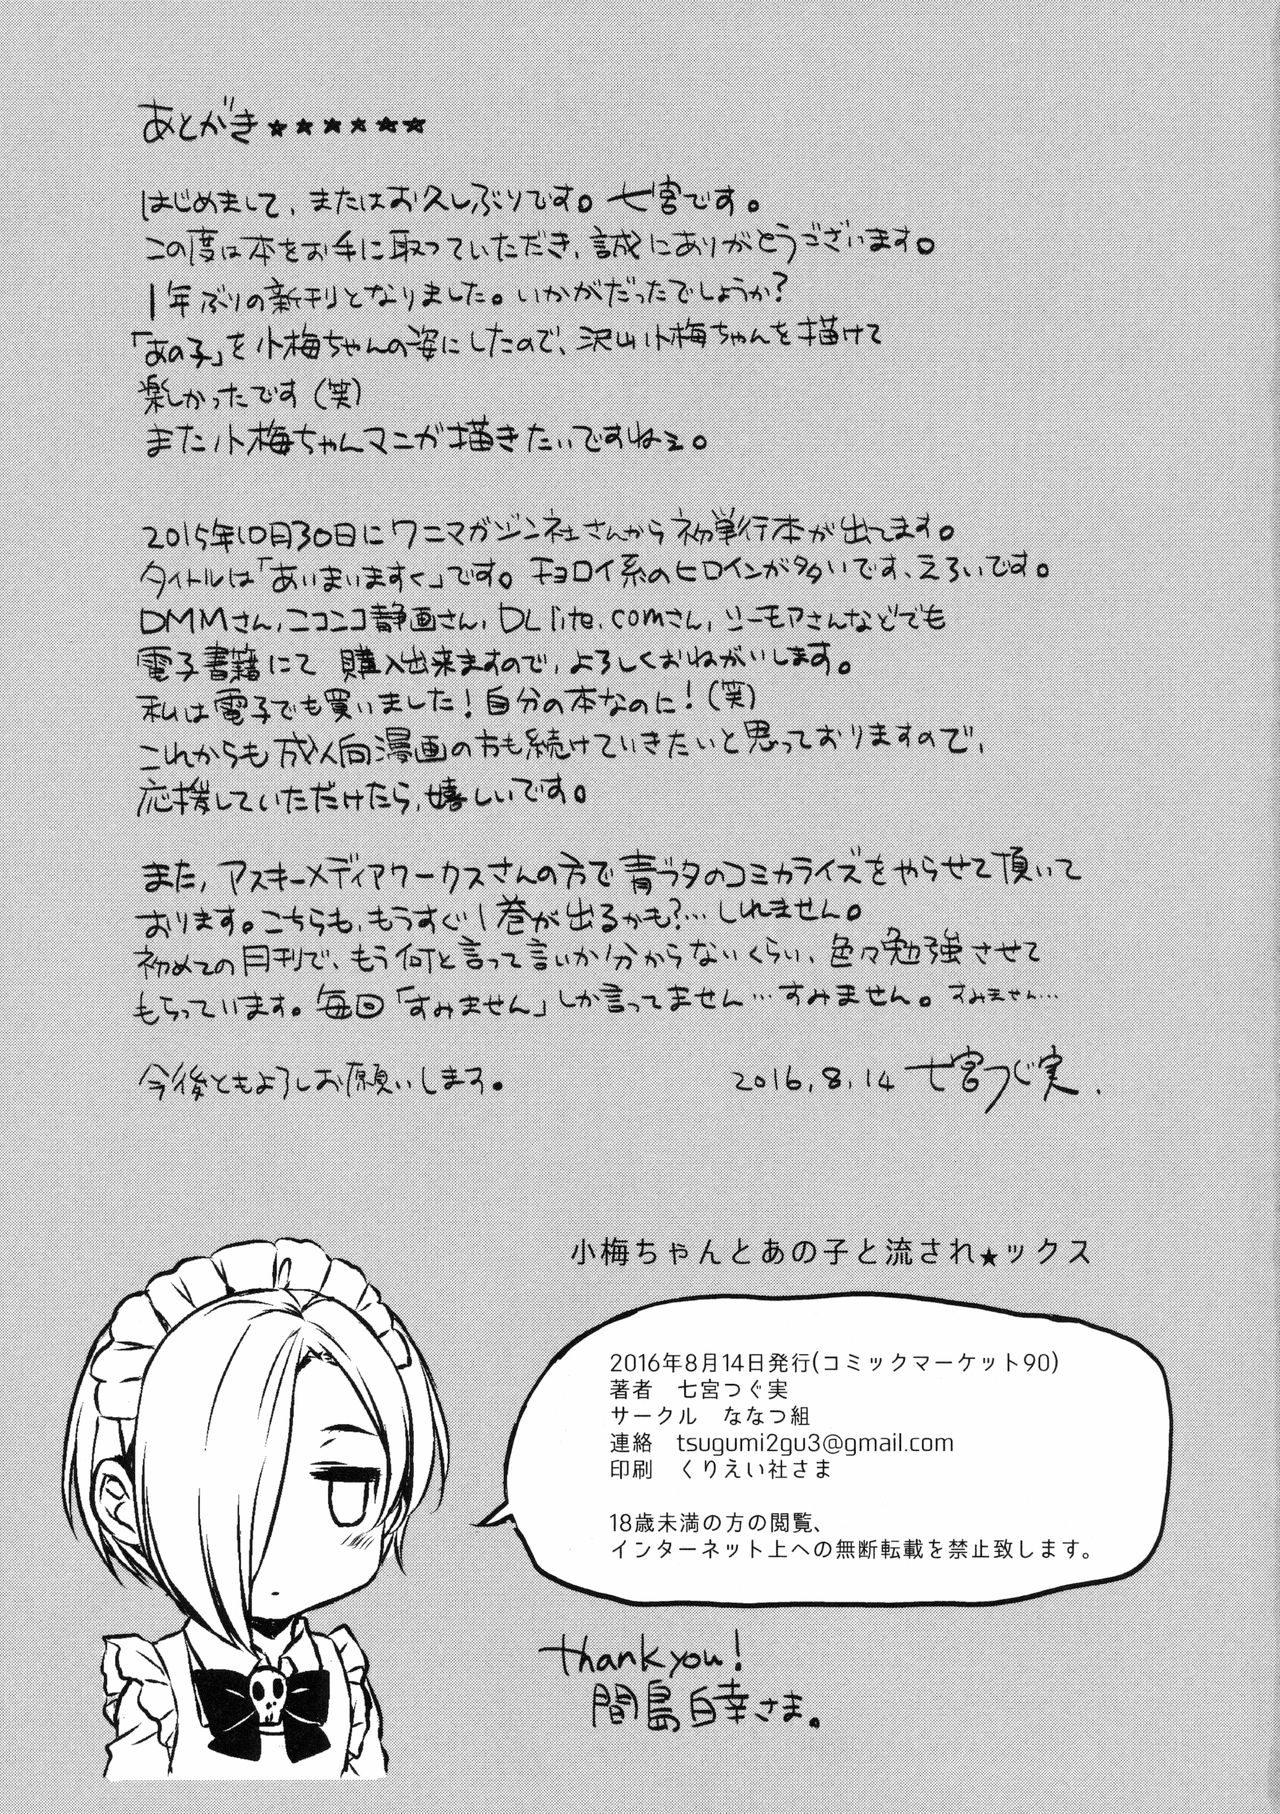 あとがき★★★★★★
はじめまして、またはお久しぶりです。七宮です。
この度は本をお手に取っていただき、誠にありがとうございます。
1年ぶりの新刊となりました。いかがだったでしょうか?
「あの子」を小梅ちゃんの姿にしたので、沢山小梅ちゃんを描けて
楽しかったです(笑)
また小梅ちゃんマンガ描きたいですねぇ。
2015年10月30日にワニマガジン社さんから初単行本が出てます。
タイトルは「あいまいますく」です。チョロイ系のヒロインが多いです、えろいです。
DMMさん、ニコニコ静画さん、DLlite.comさん、シーモアさんなどでも
電子書籍にて 購入出来ますので、よろしくおねがいします。
私は電子でも買いました!自分の本なのに!(笑)
これからも成人向漫画の方も続けていきたいと思っておりますので、
応援していただけたら、嬉しいです。
また、アスキーメディアワークスさんの方で青ブタのコミカライズをやらせて頂いて
おります。こちらも、もうすぐ1巻が出るかも?…しれません。
初めての月刊で、もう何と言って言いか分からないくらい、色々勉強させて
もらっています。毎回「すみません」しか言ってません…すみません。すみません…
今後ともよろしお願いします。 2016,8,14 七宮つぐ実.
小梅ちゃんとあの子と流され★ックス
2016年8月14日発行(コミックマーケット90)
著者 七宮つぐ実
サークル ななつ組
連絡 tsugumi2gu3@gmail.com
印刷 くりえい社さま
18歳未満の方の閲覧、
インターネット上への無断転載を禁止致します。
thank you!
間島白幸さま。